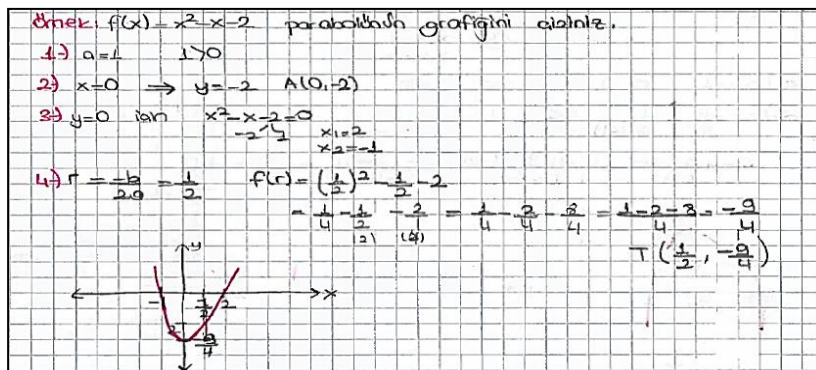 Örnek: f(x) = x² - x - 2 parabolünün grafiğini çiziniz.
1-) a=1 1>0
2-) x=0 ⟹ y=-2 A(0,-2)
3-) y=0 için x²-x-2=0
-2 1 x₁=2
x₂=-1
4-) r = -b/2a = 1/2 f(r) = (1/2)² - 1/2 - 2
= 1/4 - 1/2 - 2/1 = 1/4 - 2/4 - 8/4 = 1-2-8/4 = -9/4
(2) (4)
T(1/2, -9/4)
y
-1 1/2 2 x
2
-9/4